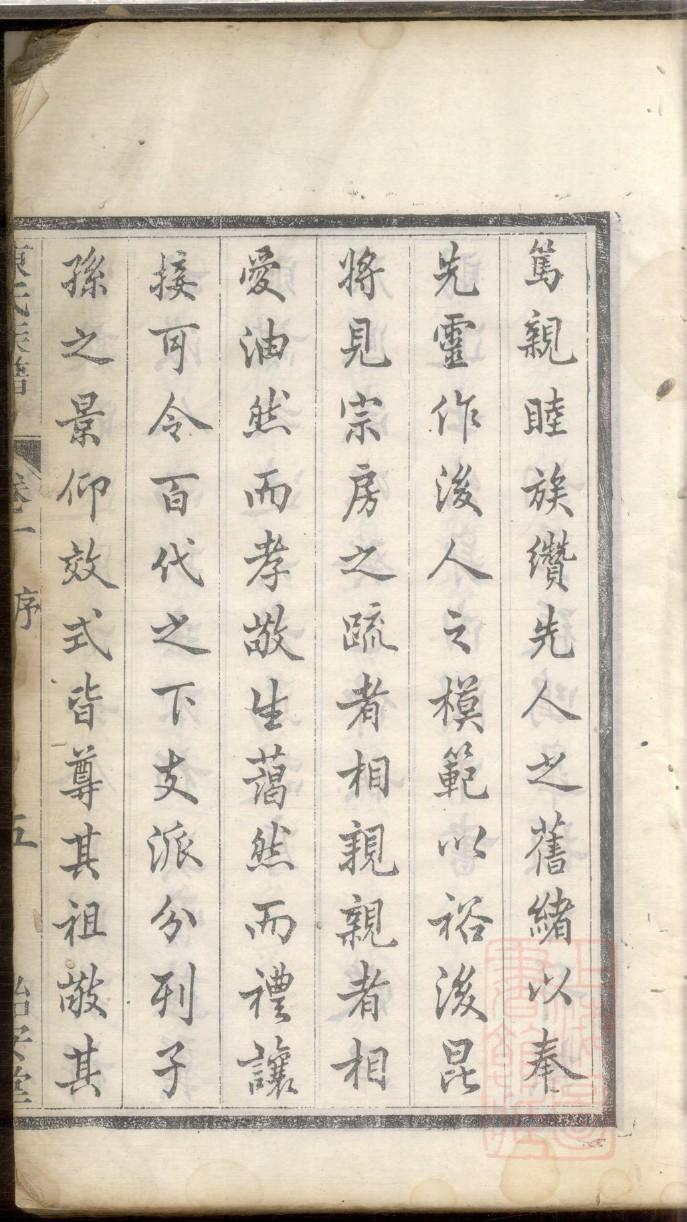 篤親睦族纘先人之舊緒以奉
先靈作後人之模範以裕後昆
將見宗房之疏者相親親者相
愛油然而孝敬生藹然而禮讓
接可令百代之下支派分列子
孫之景仰效式皆尊其祖敬其
氏族譜
卷一 序
五
上海圖書館藏